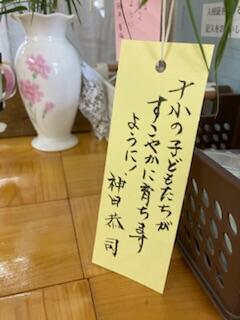 才小の子どもたちが
すこやかに育ちます
ように!
神田恭司